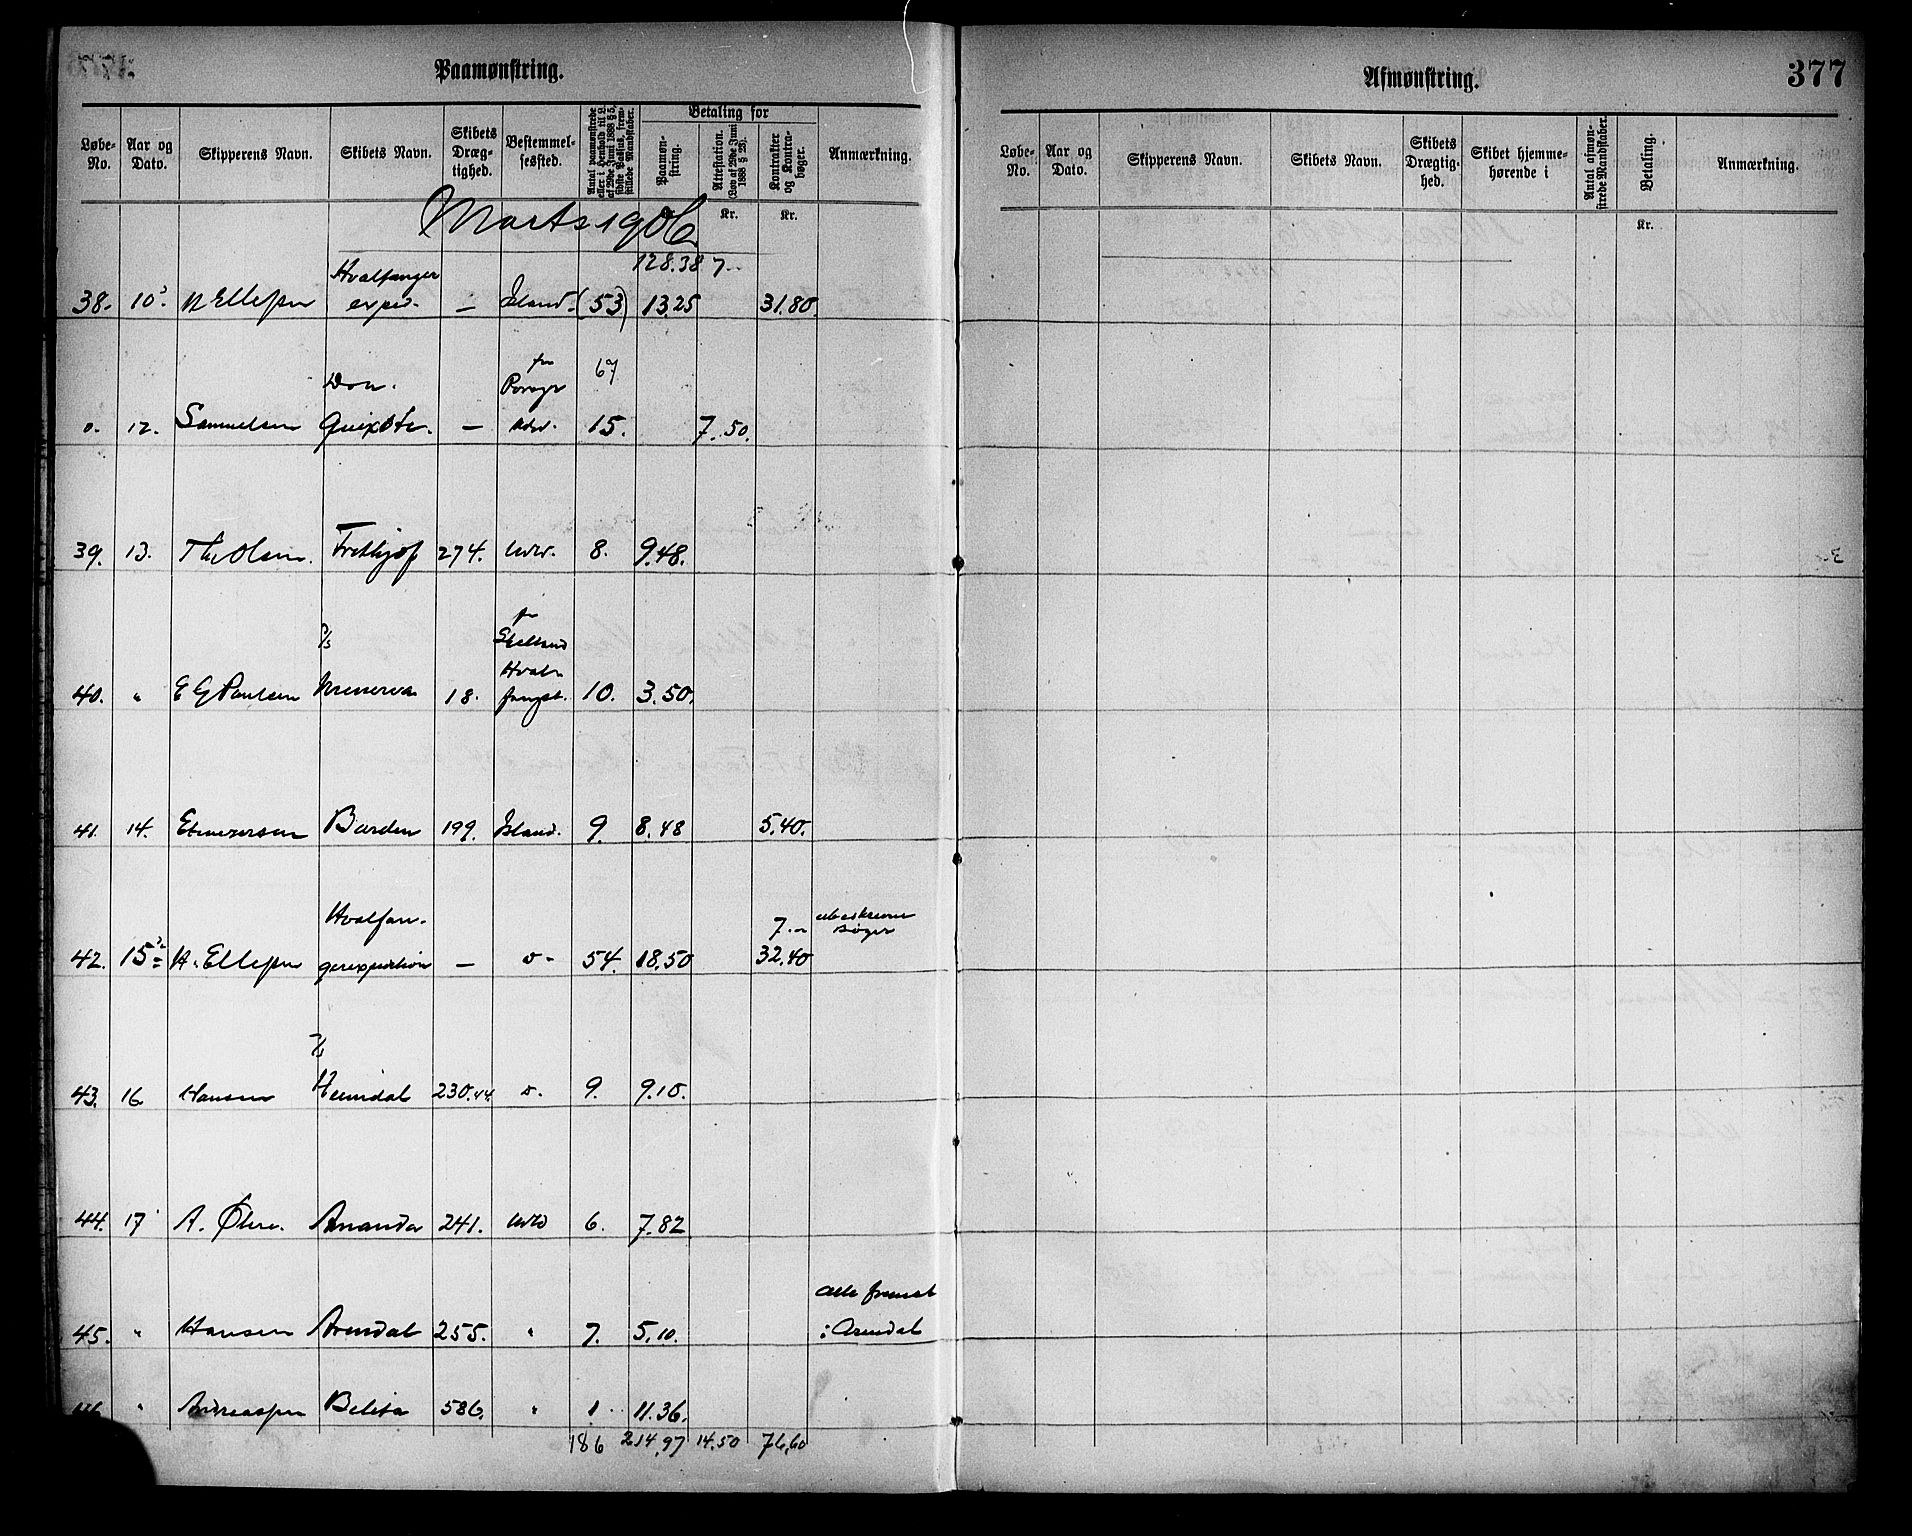 Paamønstring.
Løbe-No. Aar og Dato. Skipperens Navn. Skibets Navn. Skibets Dræg-tighed. Bestemmel-sessted. Antal paamønstrede eller i Henhold til L. af 29de Juni 1888 § 5, sidste Passus, frem-stillede Mandskaber. Betaling for Paamøn-string. Attestation. (Lov af 29de Juni 1888 § 28). Kontrakter og Kontra-bøger. Anmærkning.
Kr. Kr.
Marts 1906
128.38 7 --
38. 10 3 Ellefsen Hvalfanger exped. — Island. (53) 13.25 31.80.
67
0. 12. Samuelsen Don Quixote. — 15. 7.50.
39. 13. Th Olsen. Frithjof 274. Udv. 8. 9.48.
40. " E G Paulsen S/s Minerva 18. Hval-fangst. 10. 3.50.
41. 14. Ebenezersen Barden 199. Island. 9. 8.48 5.40.
7. --
42. 15 H. Ellefsen Hvalfan-gerexpedition — o - 54. 18.50 32.40 ubeskrevne Bøger
43. 16 Hansen S/s Heimdal 230.44. o. 9. 9.10.
44. 17 A. Amanda 241. Udv 6. 7.82
45. " Hansen Arendal 255. " 7. 5.10. alle fremst i Arendal
" Andreassen Belisa 586. " 1. 11.36.
186 214,97 14.50 76,60
Afmønstring.
377
Løbe-No. Aar og Dato. Skipperens Navn. Skibets Navn. Skibets Drægtig-hed. Skibet hjemme-hørende i Antal afmøn-strede Mandskaber. Betaling. Anmærkning.
Kr.